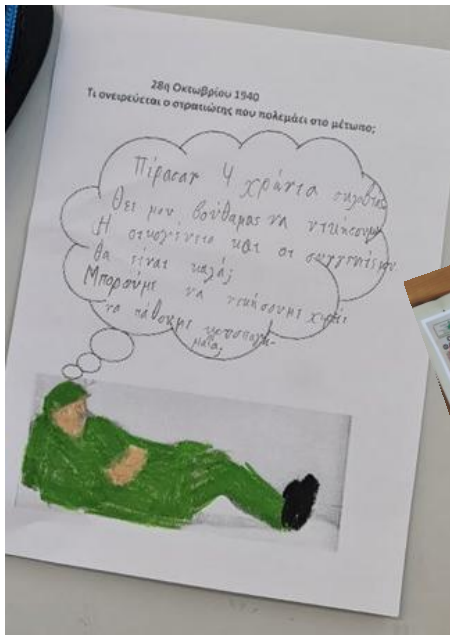 28η Οκτωβρίου 1940
Τι ονειρεύεται ο στρατιώτης που πολεμάει στο μέτωπο;
Πίρασαν 4 χρόνια σκλαβιάς
Θεέ μου, βούθαμας να νικήσουμε
Η οικογένεια και οι συγγενείς μου
θα είναι καλά;
Μπορούμε να νικήσουμε χωρίς
να πάθουμε κρυοπαγή-
ματα;